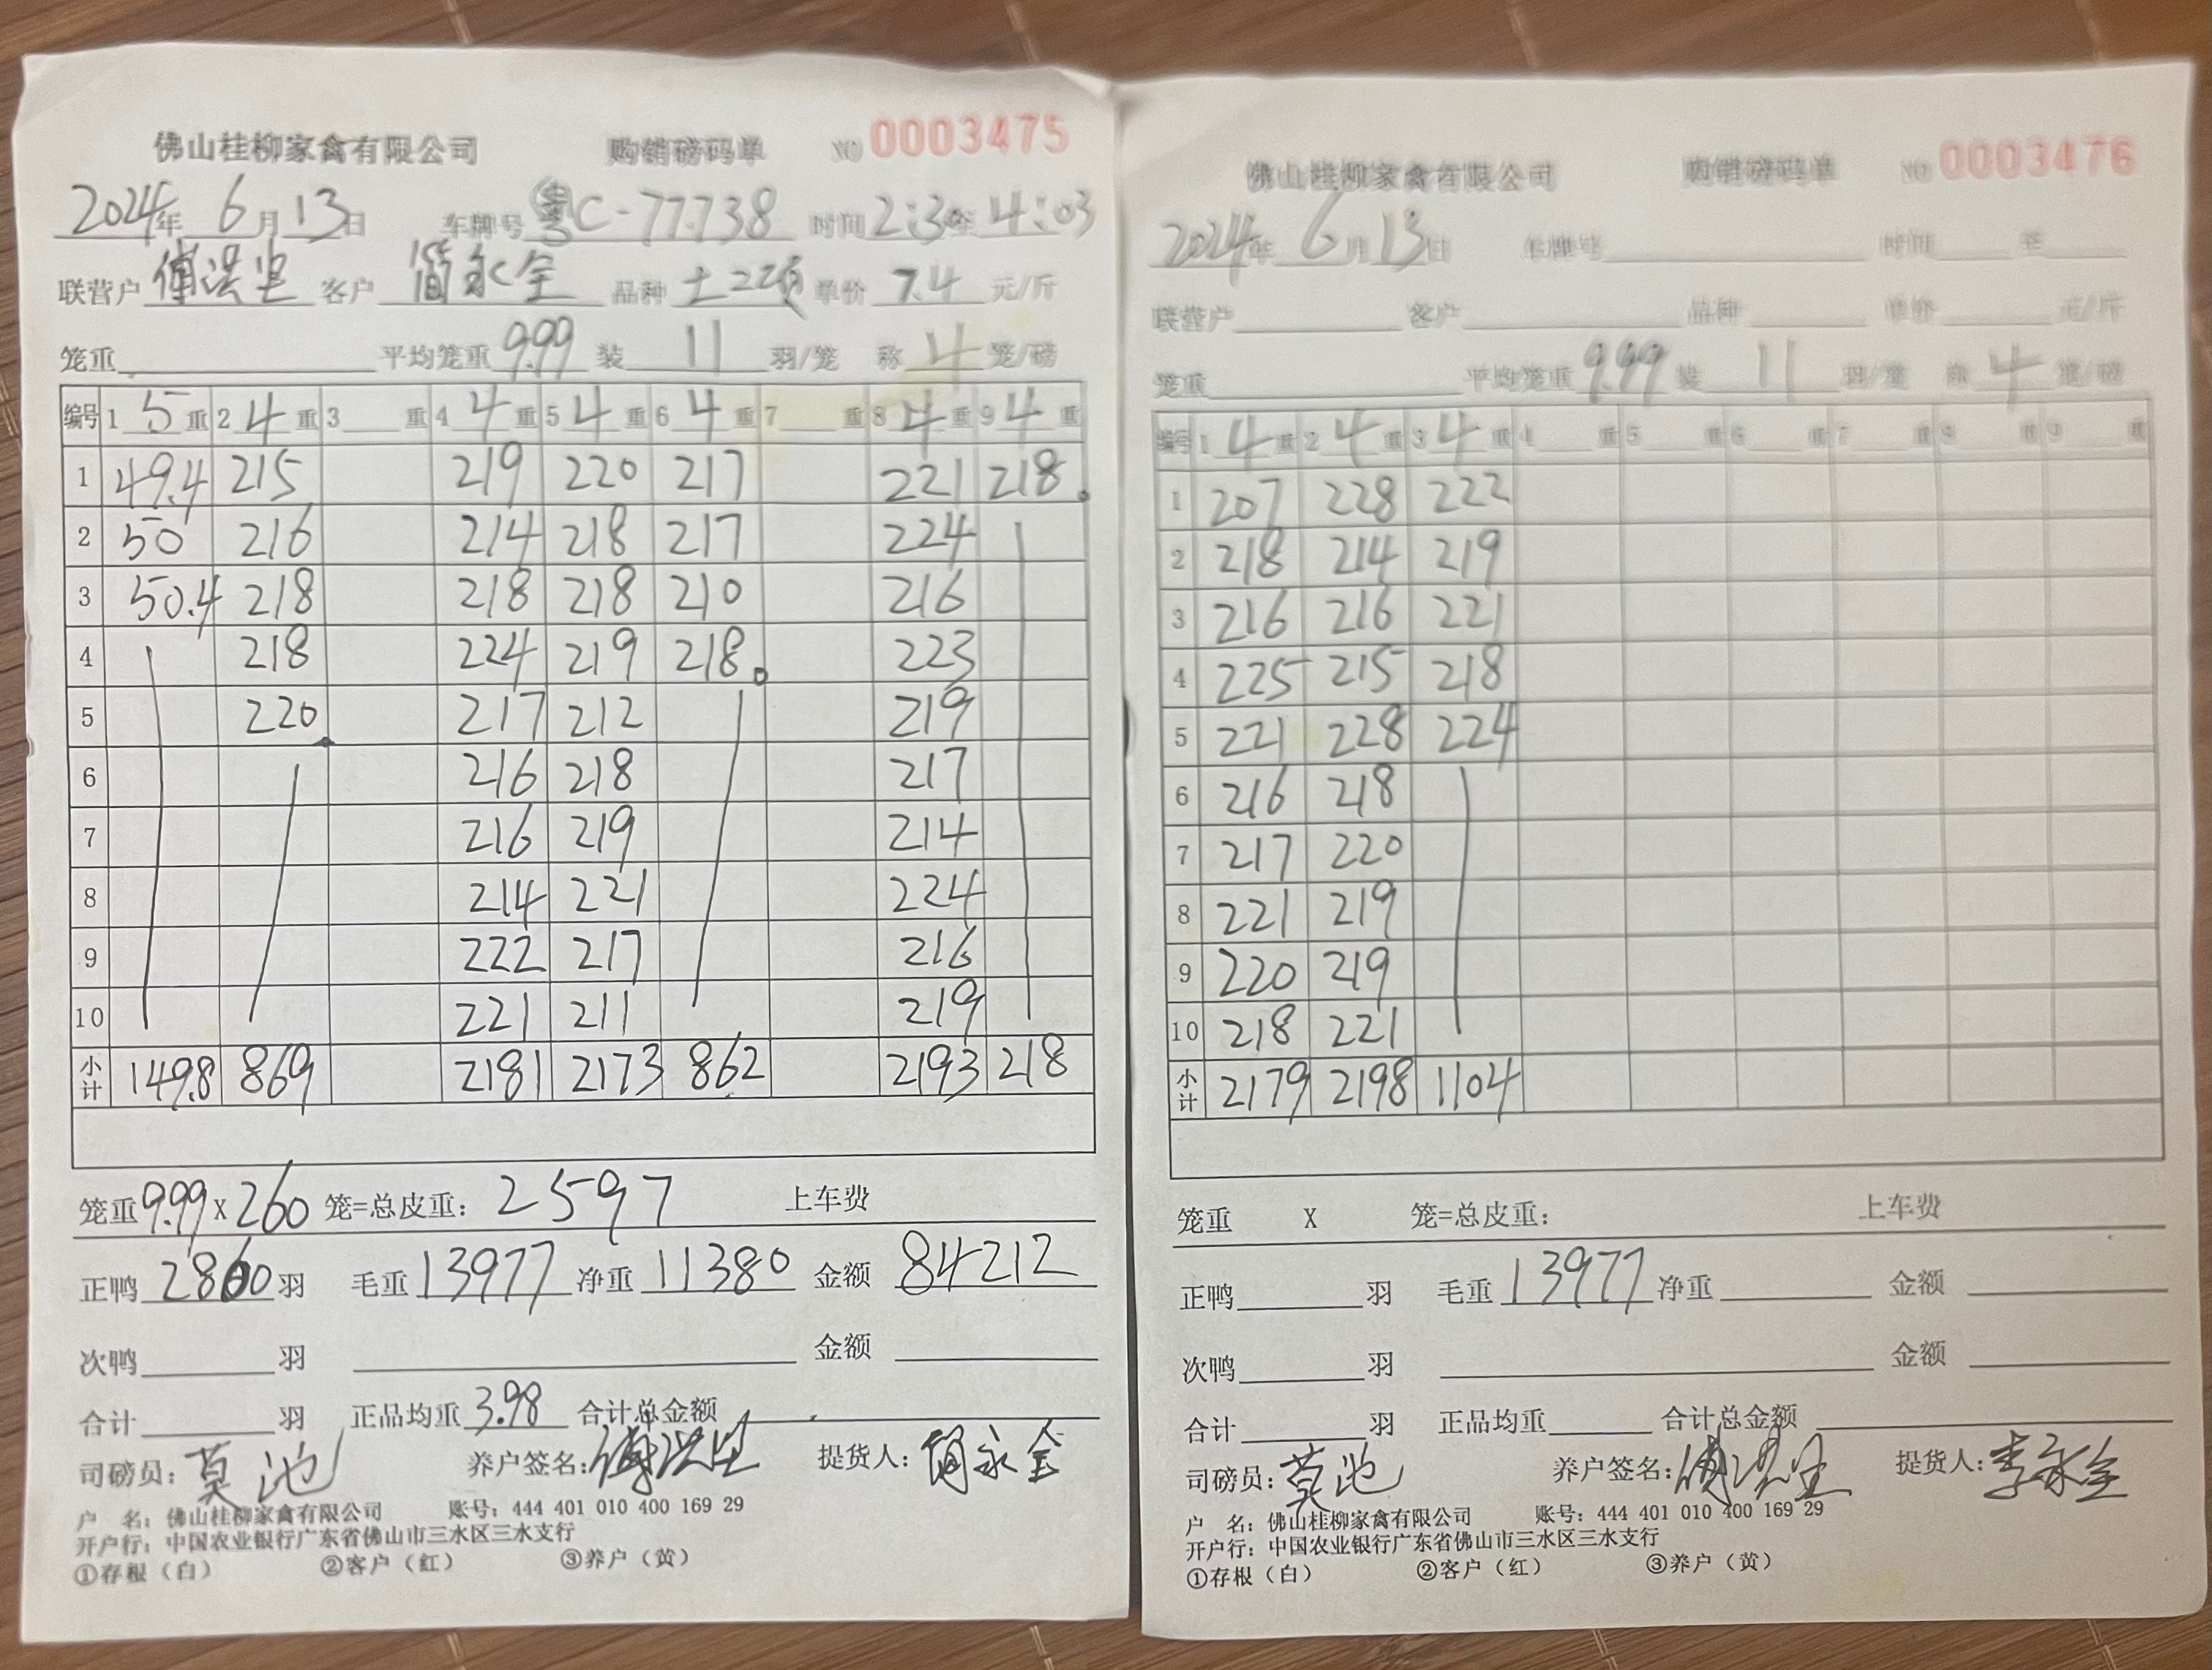 佛山桂柳家禽有限公司 购销磅码单 NO 0003475
2024年 6月13日 车牌号 粤C-77738 时间2:30至4:03
联营户 傅洪坚 客户 简永全 品种 土二项 单价 7.4 元/斤
笼重 平均笼重 9.99 装 11 羽/笼 称 4 笼/磅
编号 1 5 重 2 4 重 3 重 4 4 重 5 4 重 6 4 重 7 重 8 4 重 9 4 重
1 49.4 215 219 220 217 221 218
2 50 216 214 218 217 224
3 50.4 218 218 218 210 216
4 218 224 219 218 223
5 220 217 212 219
6 216 218 217
7 216 219 214
8 214 221 224
9 222 217 216
10 221 211 219
小计 149.8 869 2181 2173 862 2193 218
笼重 9.99 X 260 笼=总皮重: 2597 上车费
正鸭 2860 羽 毛重 13977 净重 11380 金额 84212
次鸭 羽 金额
合计 羽 正品均重 3.98 合计总金额
司磅员: 莫池 养户签名: 傅洪坚 提货人: 简永全
户 名: 佛山桂柳家禽有限公司 账号: 444 401 010 400 169 29
开户行: 中国农业银行广东省佛山市三水区三水支行
①存根（白） ②客户（红） ③养户（黄）
佛山桂柳家禽有限公司 购销磅码单 NO 0003476
2024年 6月13日 车牌号 时间 至
联营户 客户 品种 单价 元/斤
笼重 平均笼重 9.99 装 11 羽/笼 称 4 笼/磅
编号 1 4 重 2 4 重 3 4 重 4 重 5 重 6 重 7 重 8 重 9 重
1 207 228 222
2 218 214 219
3 216 216 221
4 225 215 218
5 221 228 224
6 216 218
7 217 220
8 221 219
9 220 219
10 218 221
小计 2179 2198 1104
笼重 X 笼=总皮重: 上车费
正鸭 羽 毛重 13977 净重 金额
次鸭 羽 金额
合计 羽 正品均重 合计总金额
司磅员: 莫池 养户签名: 傅洪坚 提货人: 李永全
户 名: 佛山桂柳家禽有限公司 账号: 444 401 010 400 169 29
开户行: 中国农业银行广东省佛山市三水区三水支行
①存根（白） ②客户（红） ③养户（黄）